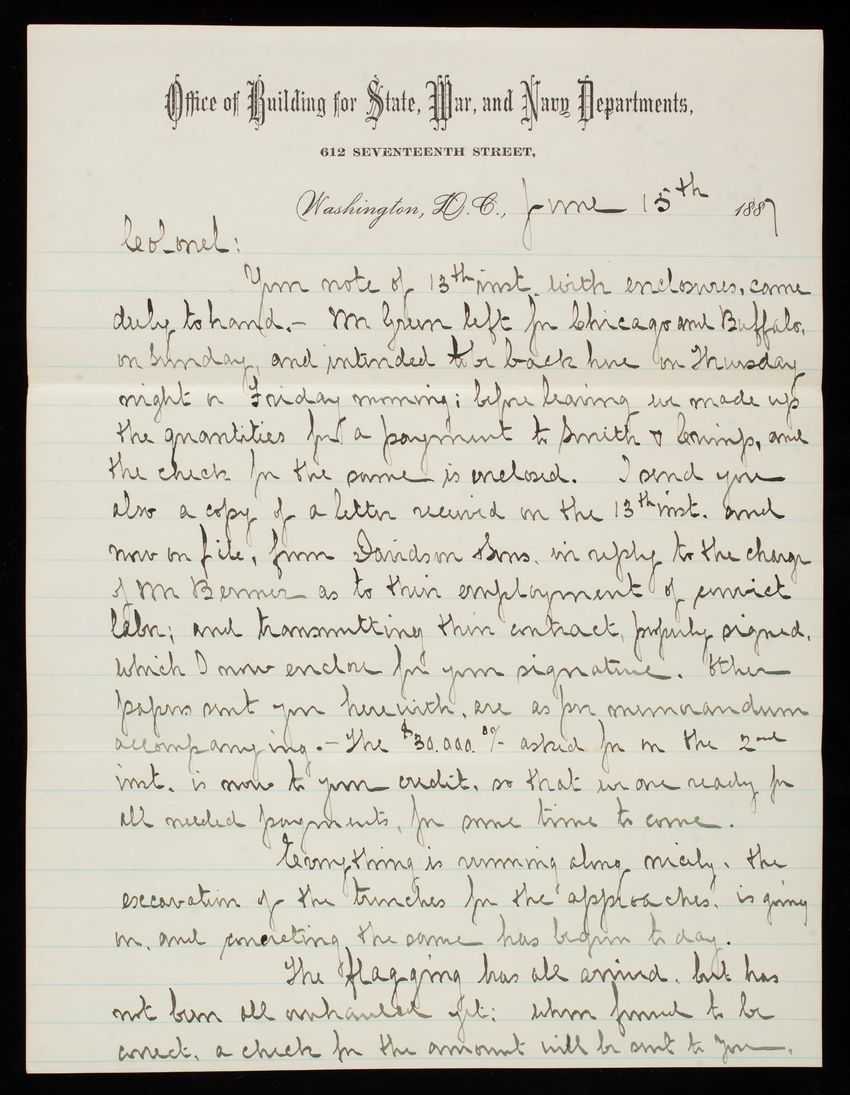 Office of Building for State, War, and Navy Departments,
612 SEVENTEENTH STREET,
Washington, D.C., June 15th 1887
Colonel:
Your note of 13th inst. with enclosures, came
duly to hand. - Mr Green left for Chicago and Buffalo,
on Sunday, and intended to be back here on Thursday
night or Friday morning; before leaving we made up
the quantities for a payment to Smith & Crimp, and
the check for the same is enclosed. I send you
also a copy of a letter received on the 13th inst. and
now on file, from Davidson & Sons. in reply to the charge
of Mr as to their employment of convict
labor; and transmitting their contract, properly signed,
which I now enclose for your signature. Other
papers sent you herewith, are as per memorandum
accompanying. - The $30,000. 00/- asked for on the 2nd
inst. is now to your credit, so that we are ready for
all needed payments, for some time to come.
Everything is running along nicely. the
excavation of the trenches for the approaches. is going
on, and concreting the same has begun to day.
The flagging has all arrived. but has
not been all overhauled yet: when found to be
correct. a check for the amount will be sent to you.